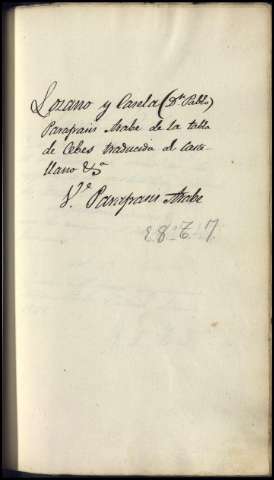 Lozano y Casela (Dn. Pablo)
Parafrasis Arabe de la tabla
de Cebes traducida al caste-
llano &a
Ve. Parafrasis Arabe